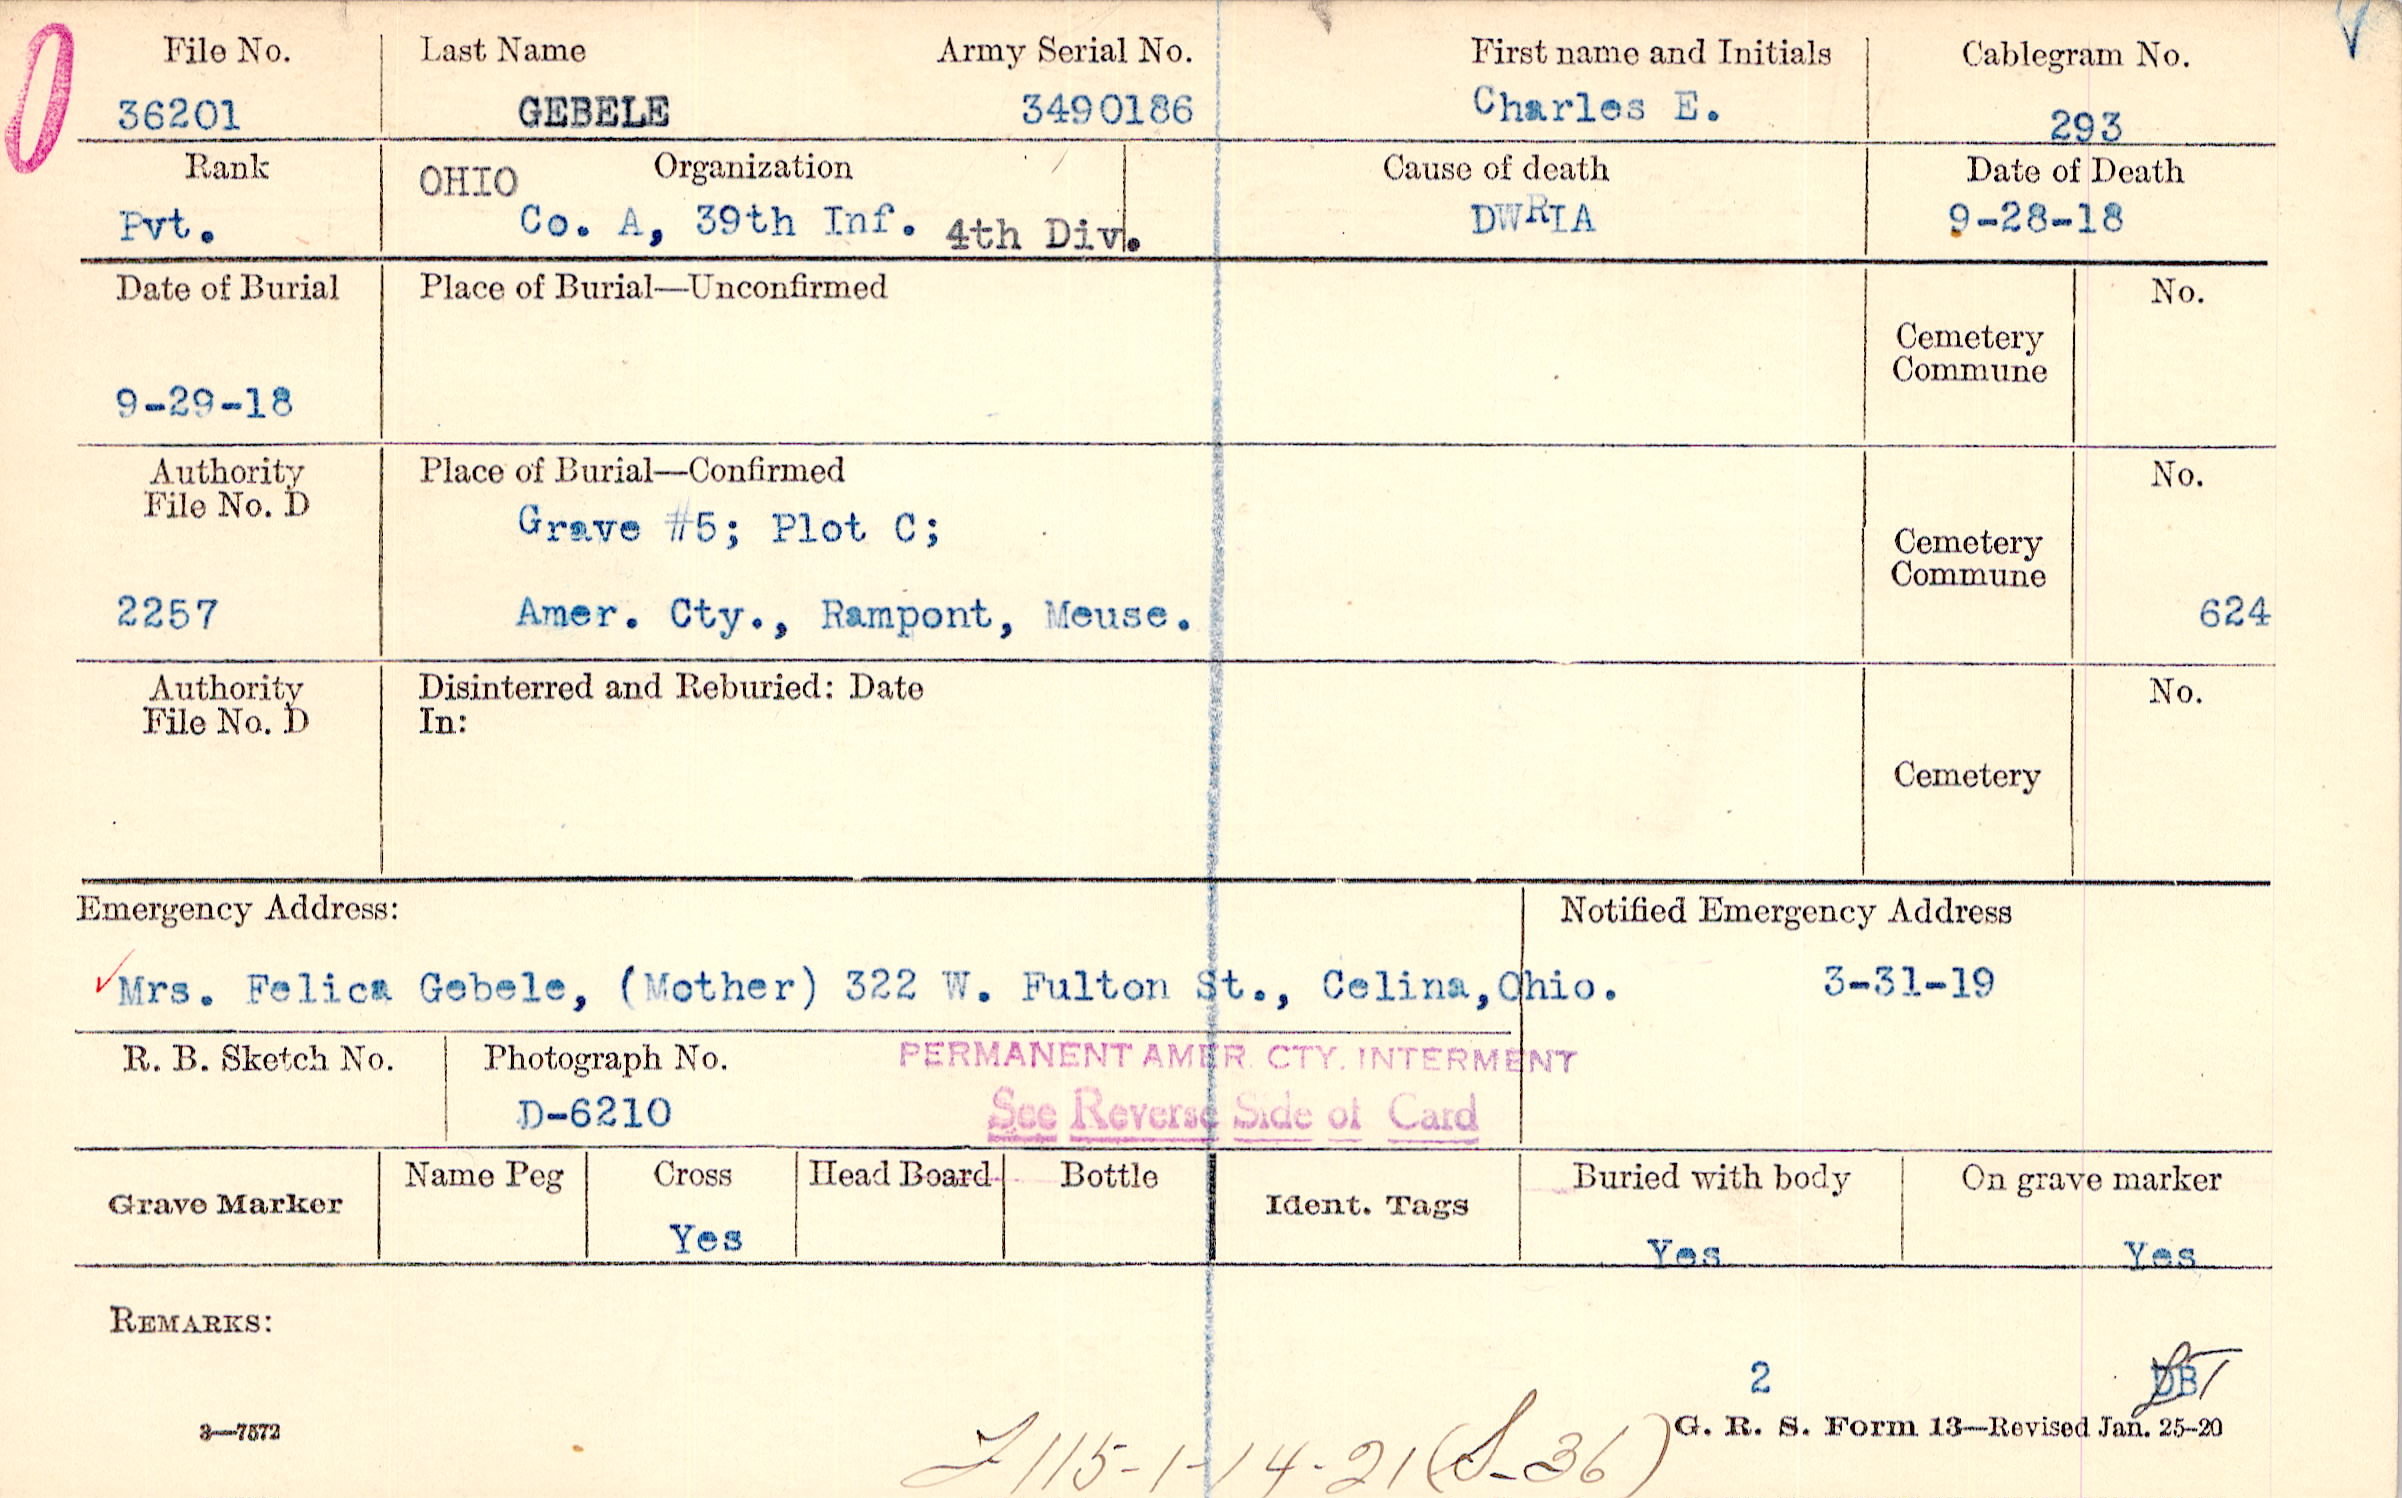 File No. Last Name Army Serial No. First name and Initials Cablegram No.
36201 GEBELE 3490186 Charles E. 293
Rank OHIO Organization Cause of death Date of Death
Pvt. Co. A, 39th Inf. 4th Div. DWRIA 9-28-18
Date of Burial Place of Burial—Unconfirmed No.
Cemetery
Commune
9-29-18
Authority Place of Burial—Confirmed No.
File No. D
Grave #5; Plot C;
Cemetery
Commune
2257 Amer. Cty., Rampont, Meuse. 624
Authority Disinterred and Reburied: Date No.
File No. D In:
Cemetery
Emergency Address: Notified Emergency Address
Mrs. Felica Gebele, (Mother) 322 W. Fulton St., Celina,Ohio. 3-31-19
R. B. Sketch No. Photograph No. PERMANENT AMER. CTY. INTERMENT
D-6210 See Reverse Side of Card
Grave Marker Name Peg Cross Head Board Bottle Ident. Tags Buried with body On grave marker
Yes Yes Yes
REMARKS:
2 DB
3—7572 G. R. S. Form 13—Revised Jan. 25-20
115-1-14-21(S-36)